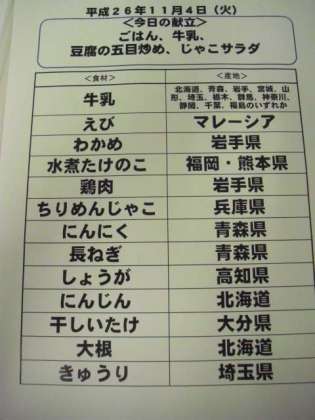 平成26年11月4日（火）
＜今日の献立＞
ごはん、牛乳、
豆腐の五目炒め、じゃこサラダ
＜食材＞ ＜産地＞
牛乳 北海道、青森、岩手、宮城、山
形、埼玉、栃木、群馬、神奈川、
静岡、千葉、福島のいずれか
えび マレーシア
わかめ 岩手県
水煮たけのこ 福岡・熊本県
鶏肉 岩手県
ちりめんじゃこ 兵庫県
にんにく 青森県
長ねぎ 青森県
しょうが 高知県
にんじん 北海道
干しいたけ 大分県
大根 北海道
きゅうり 埼玉県